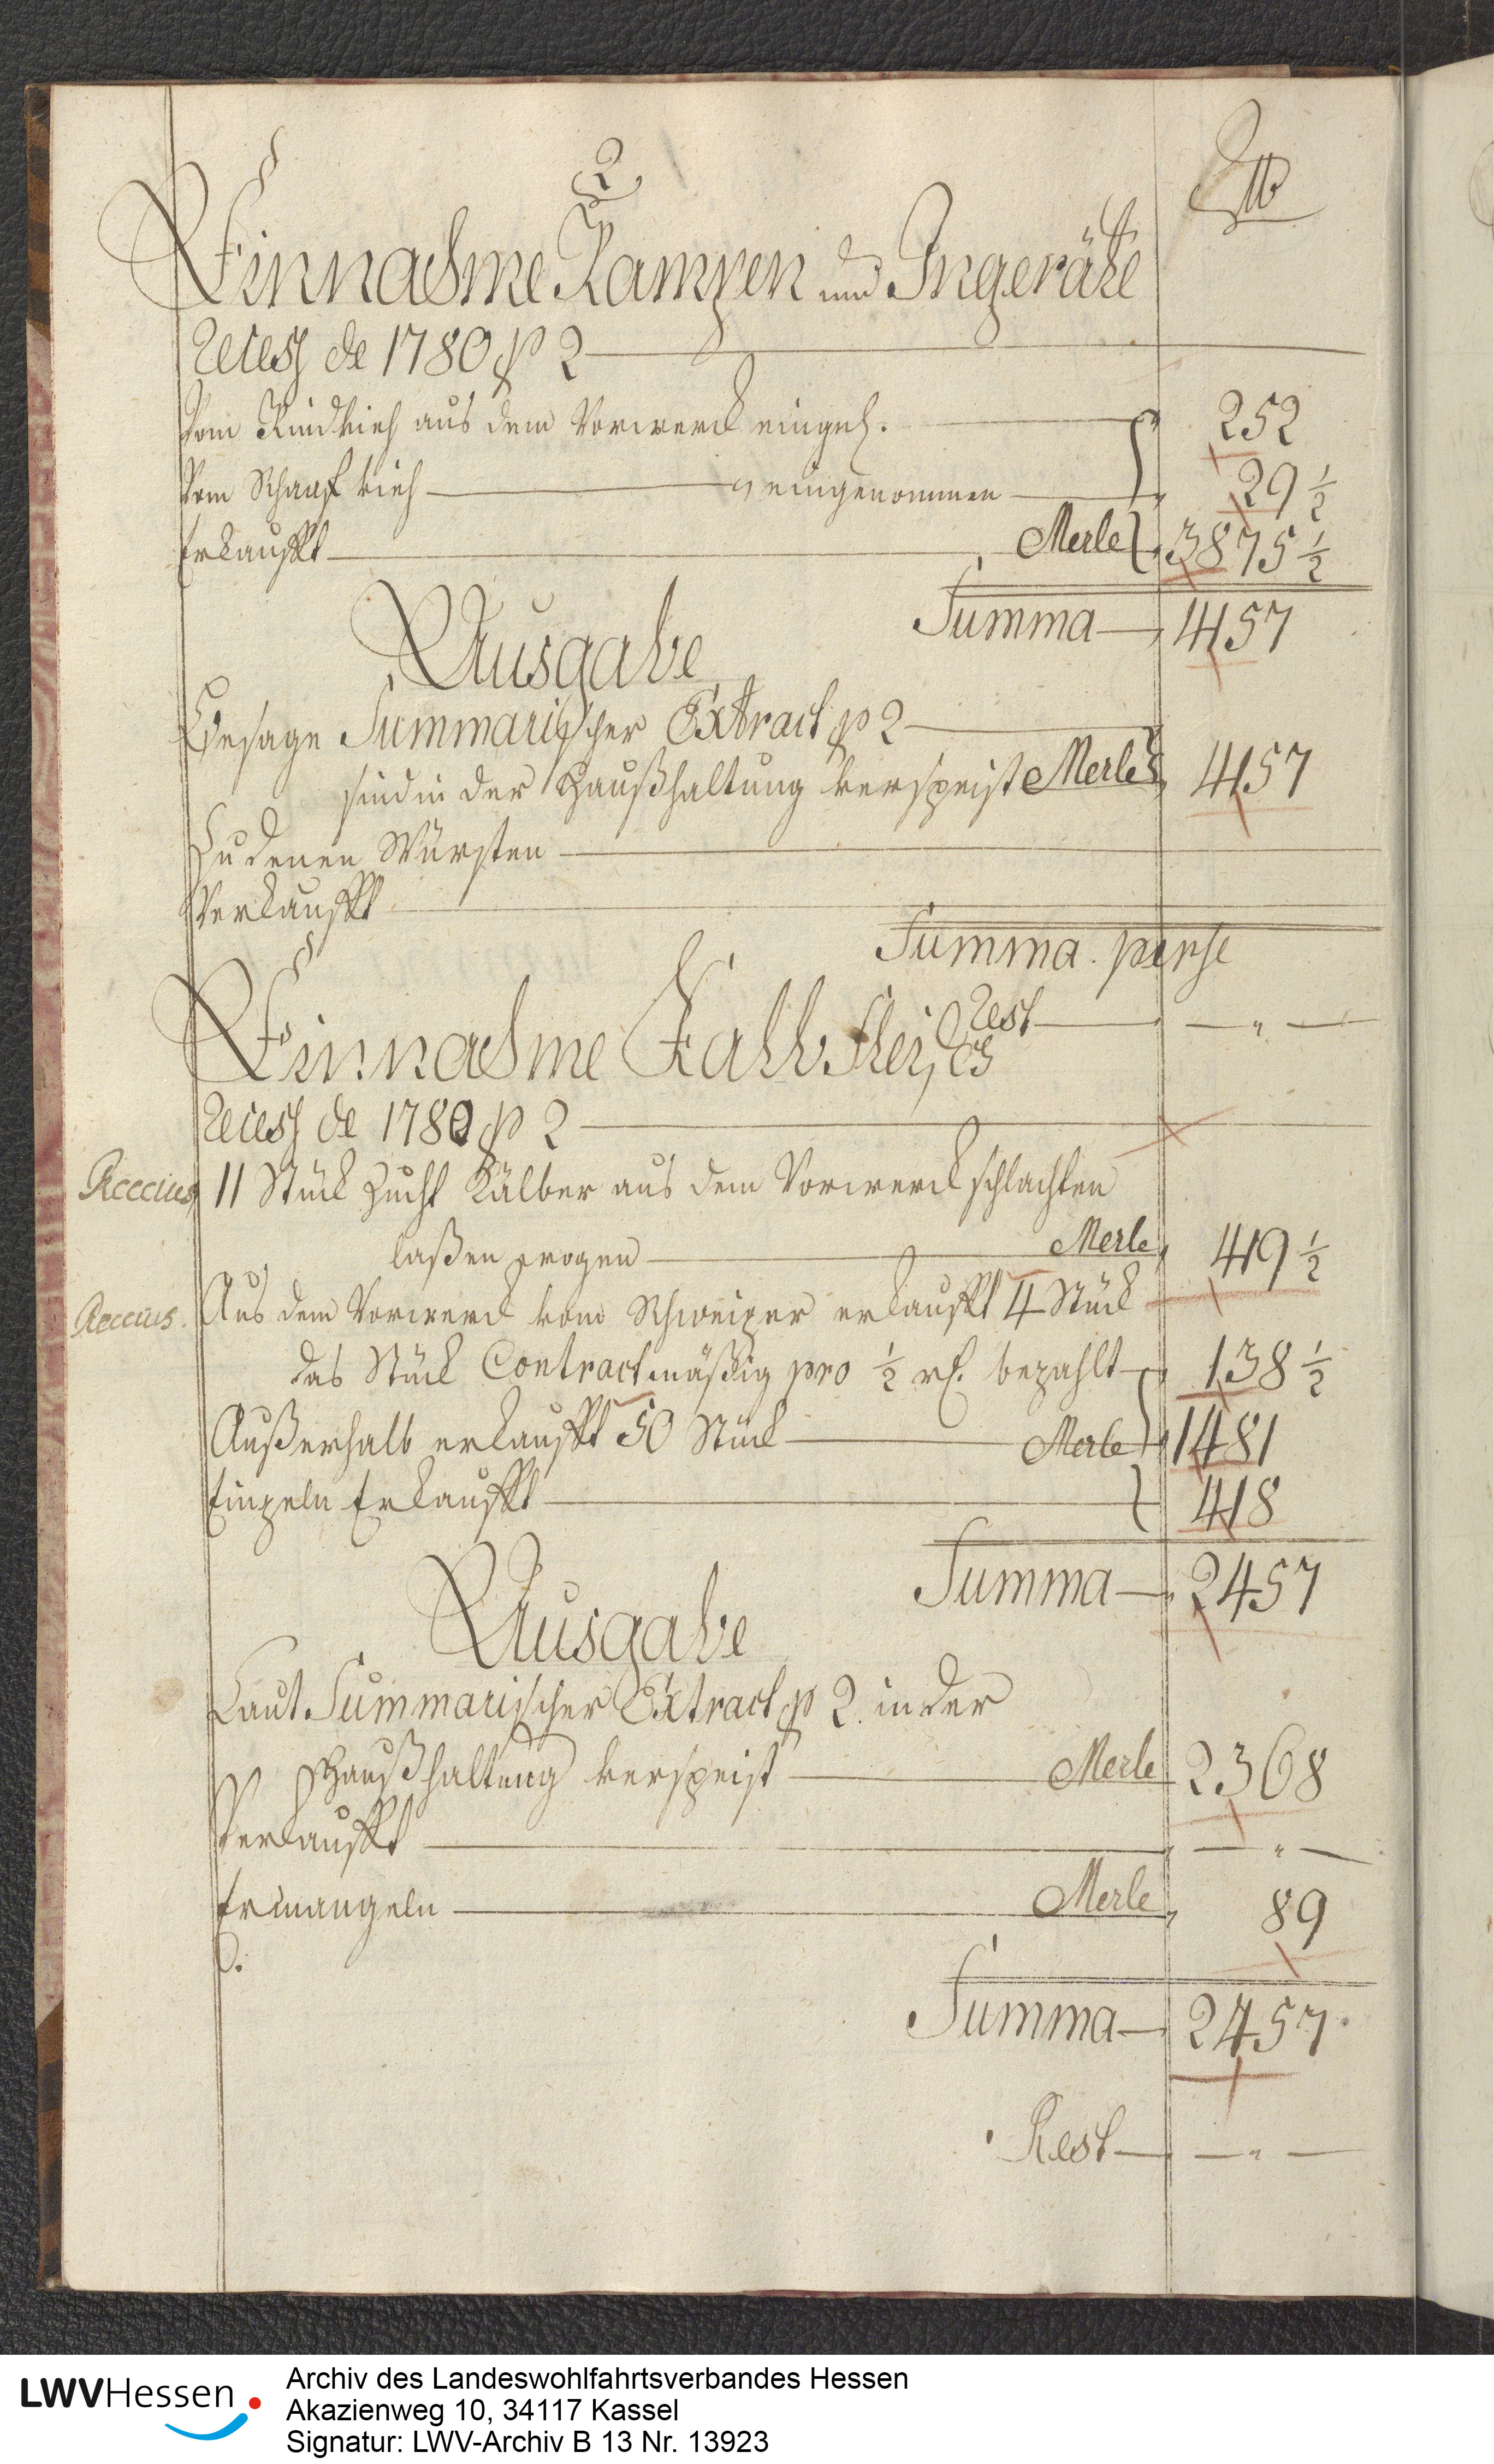 2
℔
Einnahme Kampen und Ingeräthe
Recess de 1780 p 2
Vom Rindvieh aus dem Vorwerck eingel. 252
Vom Schaaf vieh " eingenommen 29 1/2
Erkaufft Merle 3875 1/2
Summa 4157
Ausgabe
Besage Summarischer Extract p 2
sind in der Haußhaltung verspeist Merle 4157
Zu denen Würsten
Verkaufft
Summa. perse
Rest — " —
Einnahme Kalbfleisch
Recess de 1780 p 2
Reccius 11 Stück Zucht Kälber aus dem Vorwerck schlachten
laßen wogen Merle 419 1/2
Reccius. Aus dem Vorwerck vom Schweizer erkaufft 4 Stück
das Stück Contractmäßig pro 1/2 rf. bezahlt 138 1/2
Außerhalb erkaufft 50 Stück Merle 1481
Einzeln Erkaufft 418
Summa 2457
Ausgabe
Laut Summarischer Extract p 2. in der
Haußhaltung verspeist Merle 2368
Verkaufft — " —
Ermangeln Merle 89
Summa 2457
Rest — " —
LWVHessen
Archiv des Landeswohlfahrtsverbandes Hessen
Akazienweg 10, 34117 Kassel
Signatur: LWV-Archiv B 13 Nr. 13923